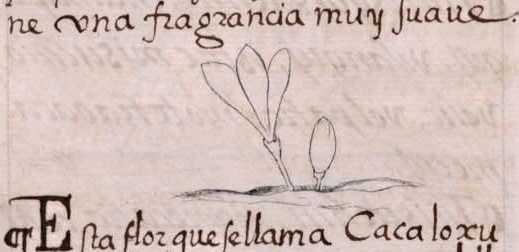 ne vna fragrancia muy suaue.
¶ Esta flor que se llama Cacaloxu